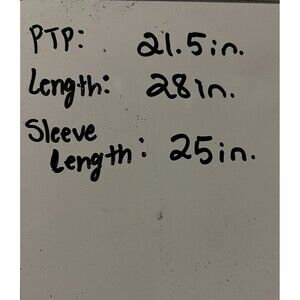 PTP: 21.5in.
Length: 28in.
Sleeve
Length: 25in.